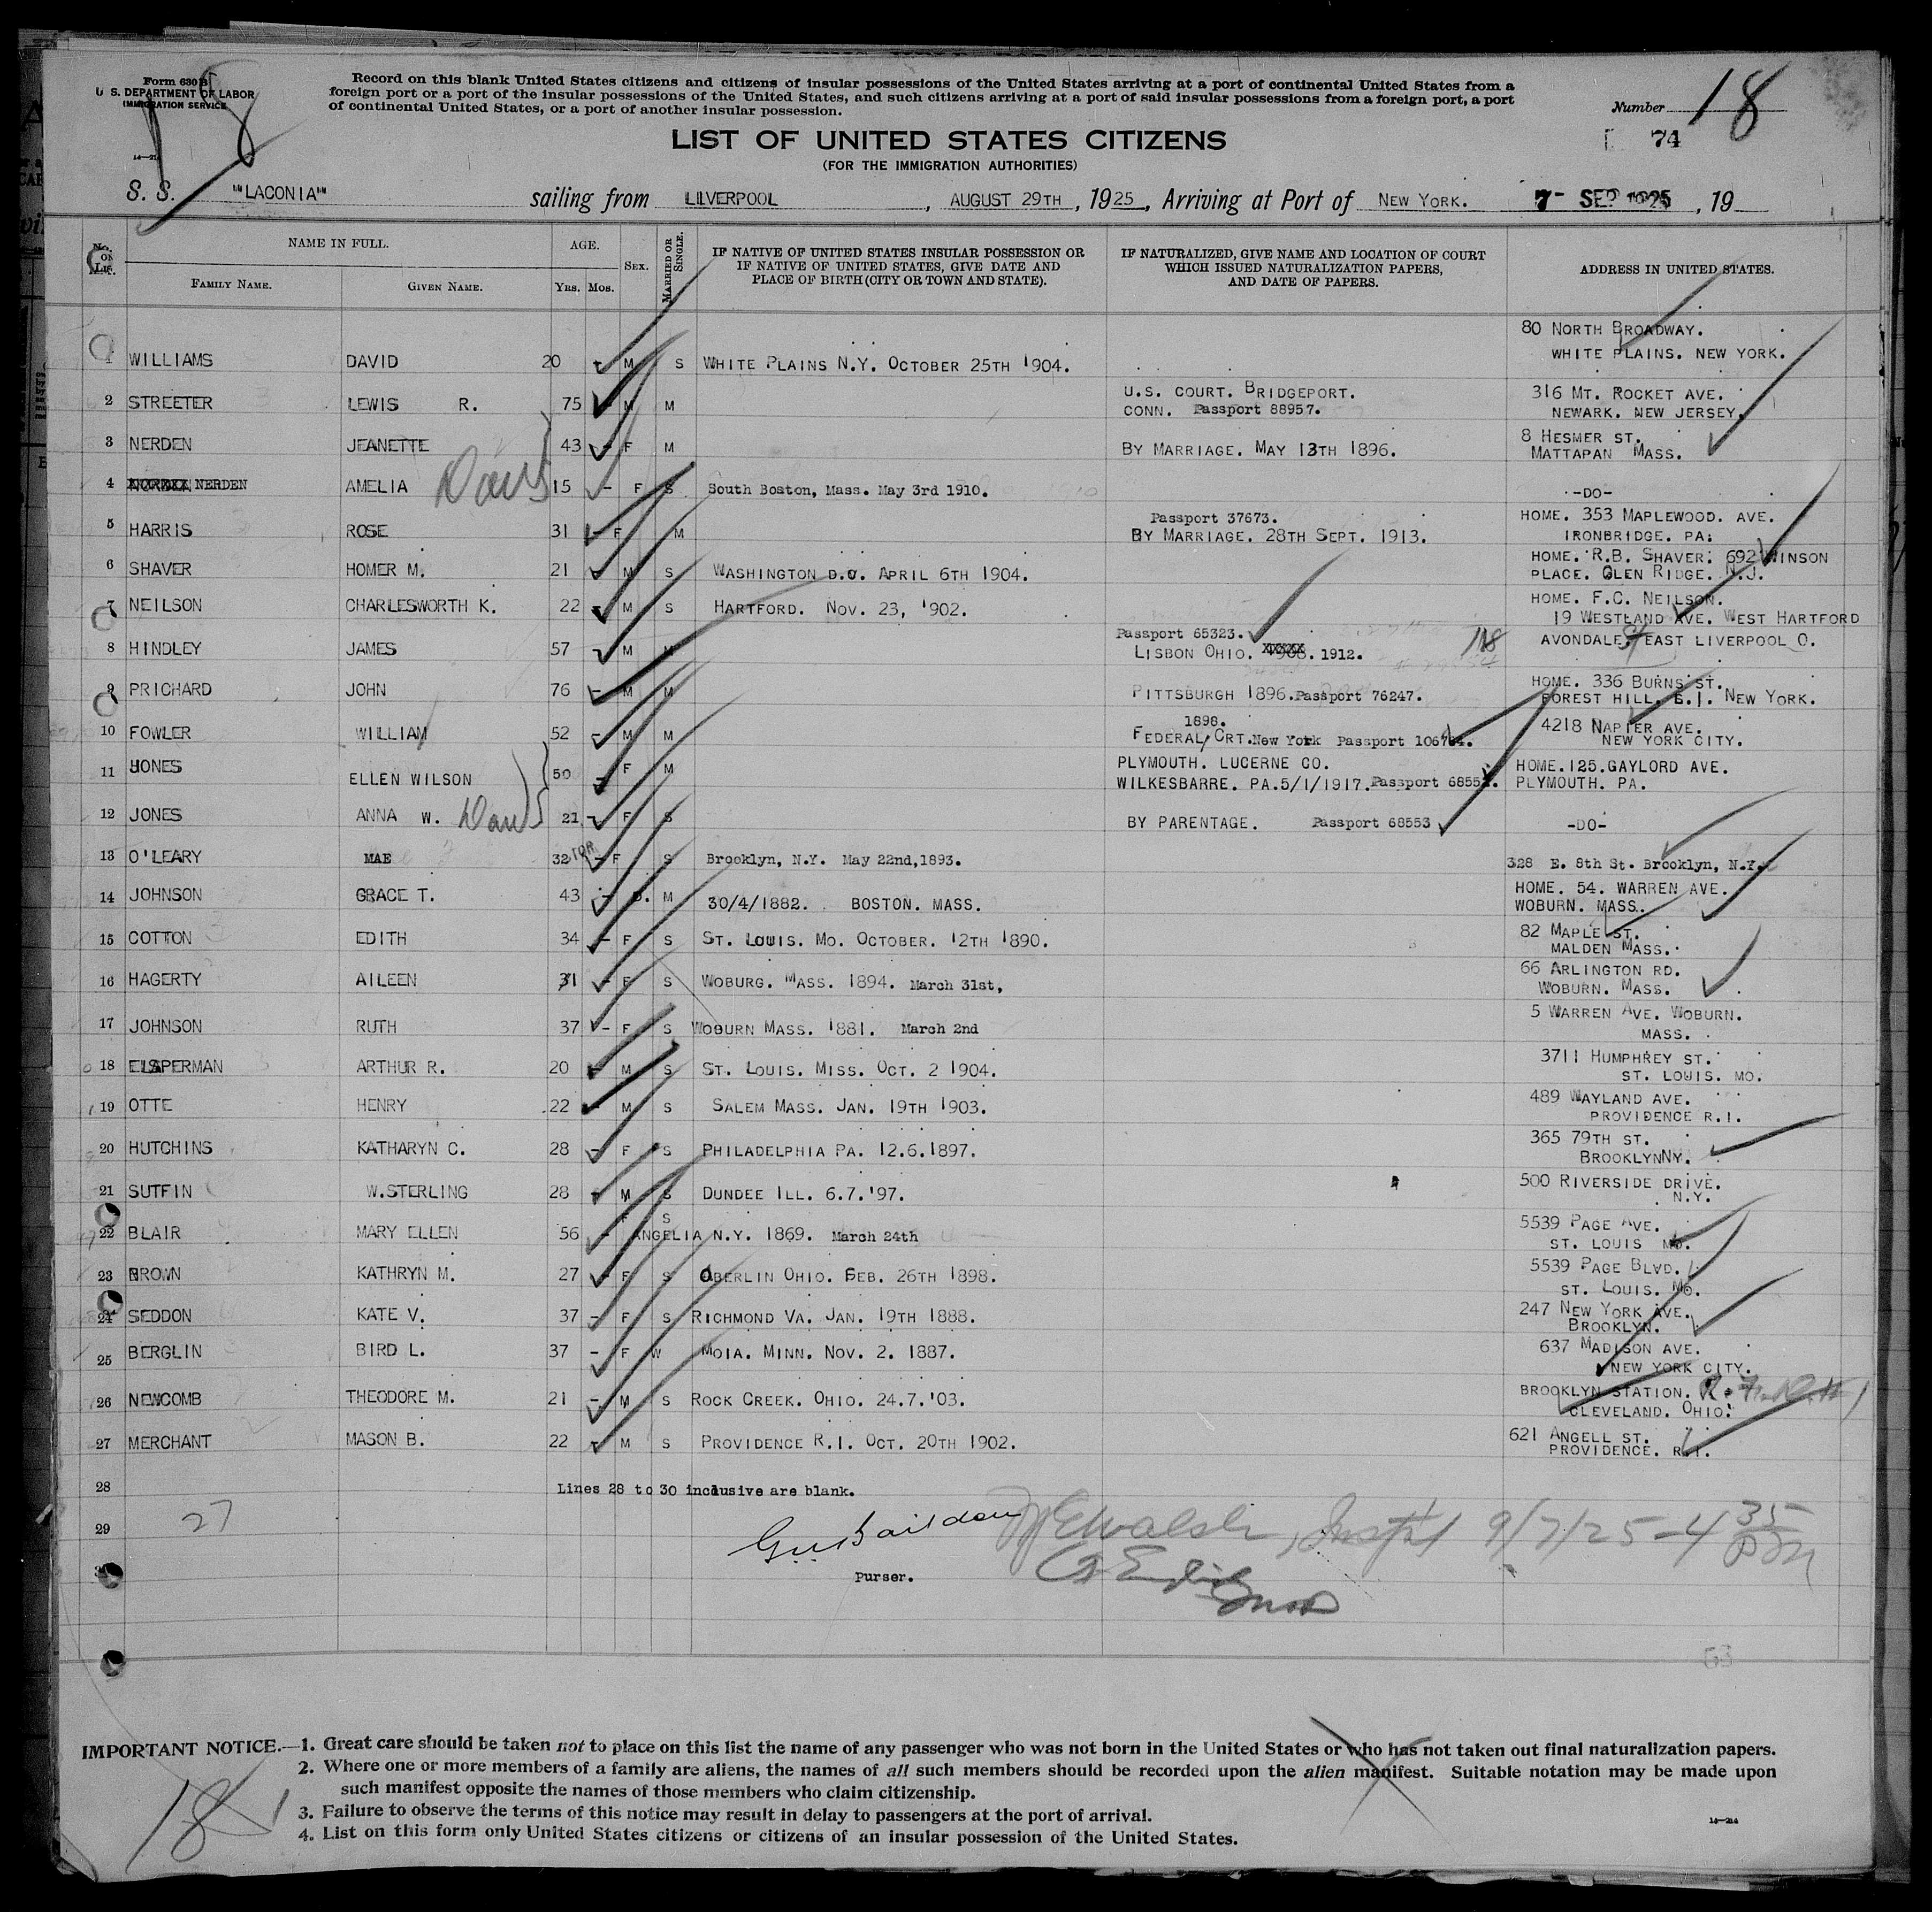 Form 630 B
U. S. DEPARTMENT OF LABOR
IMMIGRATION SERVICE
14—214
18
Record on this blank United States citizens and citizens of insular possessions of the United States arriving at a port of continental United States from a
foreign port or a port of the insular possessions of the United States, and such citizens arriving at a port of said insular possessions from a foreign port, a port
of continental United States, or a port of another insular possession.
Number 18
74
LIST OF UNITED STATES CITIZENS
(FOR THE IMMIGRATION AUTHORITIES)
S. S. "LACONIA" sailing from LIVERPOOL, AUGUST 29TH, 1925, Arriving at Port of NEW YORK. 7- SEP 1925, 19
No. ON LIST. NAME IN FULL. AGE. SEX. MARRIED OR SINGLE. IF NATIVE OF UNITED STATES INSULAR POSSESSION OR IF NATIVE OF UNITED STATES, GIVE DATE AND PLACE OF BIRTH (CITY OR TOWN AND STATE). IF NATURALIZED, GIVE NAME AND LOCATION OF COURT WHICH ISSUED NATURALIZATION PAPERS, AND DATE OF PAPERS. ADDRESS IN UNITED STATES.
FAMILY NAME. GIVEN NAME. YRS. MOS.
1 WILLIAMS DAVID 20 - M S WHITE PLAINS N.Y. OCTOBER 25TH 1904. 80 NORTH BROADWAY. WHITE PLAINS. NEW YORK.
2 STREETER LEWIS R. 75 - M M U.S. COURT. BRIDGEPORT. CONN. Passport 88957. 316 MT. ROCKET AVE. NEWARK. NEW JERSEY.
3 NERDEN JEANETTE 43 - F M BY MARRIAGE. MAY 13TH 1896. 8 HESMER ST. MATTAPAN MASS.
4 NERDEN AMELIA 15 - F S South Boston, Mass. May 3rd 1910. -DO-
5 HARRIS ROSE 31 - F M Passport 37673. BY MARRIAGE. 28TH SEPT. 1913. HOME. 353 MAPLEWOOD. AVE. IRONBRIDGE. PA.
6 SHAVER HOMER M. 21 - M S WASHINGTON D.C. APRIL 6TH 1904. HOME. R.B. SHAVER. 692 WINSON PLACE. GLEN RIDGE. N.J.
7 NEILSON CHARLESWORTH K. 22 - M S HARTFORD. NOV. 23, 1902. HOME. F.C. NEILSON. 19 WESTLAND AVE. WEST HARTFORD
8 HINDLEY JAMES 57 - M M Passport 65323. LISBON OHIO. 1912. AVONDALE St EAST LIVERPOOL O.
9 PRICHARD JOHN 76 - M M PITTSBURGH 1896. Passport 76247. HOME. 336 BURNS ST. FOREST HILL. L.I. NEW YORK.
10 FOWLER WILLIAM 52 - M M 1898. FEDERAL CRT. New York Passport 106764. 4218 NAPIER AVE. NEW YORK CITY.
11 JONES ELLEN WILSON 50 - F M PLYMOUTH. LUCERNE CO. WILKESBARRE. PA. 5/1/1917. Passport 68553. HOME. 125. GAYLORD AVE. PLYMOUTH. PA.
12 JONES ANNA W. 21 - F S BY PARENTAGE. Passport 68553 -DO-
13 O'LEARY MAE 32 - F S Brooklyn, N.Y. May 22nd, 1893. 328 E. 8th St. Brooklyn, N.Y.
14 JOHNSON GRACE T. 43 - M 30/4/1882. BOSTON. MASS. HOME. 54. WARREN AVE. WOBURN. MASS.
15 COTTON EDITH 34 - F S ST. LOUIS. MO. OCTOBER. 12TH 1890. 82 MAPLE ST. MALDEN MASS.
16 HAGERTY AILEEN 31 - F S WOBURG. MASS. 1894. March 31st, 66 ARLINGTON RD. WOBURN. MASS.
17 JOHNSON RUTH 37 - F S WOBURN MASS. 1881. March 2nd 5 WARREN AVE. WOBURN. MASS.
18 ELSPERMAN ARTHUR R. 20 - M S ST. LOUIS. MISS. OCT. 2 1904. 3711 HUMPHREY ST. ST. LOUIS. MO.
19 OTTE HENRY 22 - M S SALEM MASS. JAN. 19TH 1903. 489 WAYLAND AVE. PROVIDENCE R.I.
20 HUTCHINS KATHARYN C. 28 - F S PHILADELPHIA PA. 12.6.1897. 365 79TH ST. BROOKLYN NY.
21 SUTFIN W. STERLING 28 - M S DUNDEE ILL. 6.7.'97. 500 RIVERSIDE DRIVE. N.Y.
22 BLAIR MARY ELLEN 56 - F S ANGELIA N.Y. 1869. March 24th 5539 PAGE AVE. ST. LOUIS MO.
23 BROWN KATHRYN M. 27 - F S OBERLIN OHIO. FEB. 26TH 1898. 5539 PAGE BLVD. ST. LOUIS. MO.
24 SEDDON KATE V. 37 - F S RICHMOND VA. JAN. 19TH 1888. 247 NEW YORK AVE. BROOKLYN.
25 BERGLIN BIRD L. 37 - F W MOIA. MINN. NOV. 2. 1887. 637 MADISON AVE. NEW YORK CITY.
26 NEWCOMB THEODORE M. 21 - M S ROCK CREEK. OHIO. 24.7.'03. BROOKLYN STATION. CLEVELAND. OHIO.
27 MERCHANT MASON B. 22 - M S PROVIDENCE R.I. OCT. 20TH 1902. 621 ANGELL ST. PROVIDENCE. R.I.
28 Lines 28 to 30 inclusive are blank.
29 27
9/7/25-4 35 pm
Purser.
63
IMPORTANT NOTICE.—1. Great care should be taken not to place on this list the name of any passenger who was not born in the United States or who has not taken out final naturalization papers.
2. Where one or more members of a family are aliens, the names of all such members should be recorded upon the alien manifest. Suitable notation may be made upon
such manifest opposite the names of those members who claim citizenship.
3. Failure to observe the terms of this notice may result in delay to passengers at the port of arrival.
4. List on this form only United States citizens or citizens of an insular possession of the United States.
14—214
18